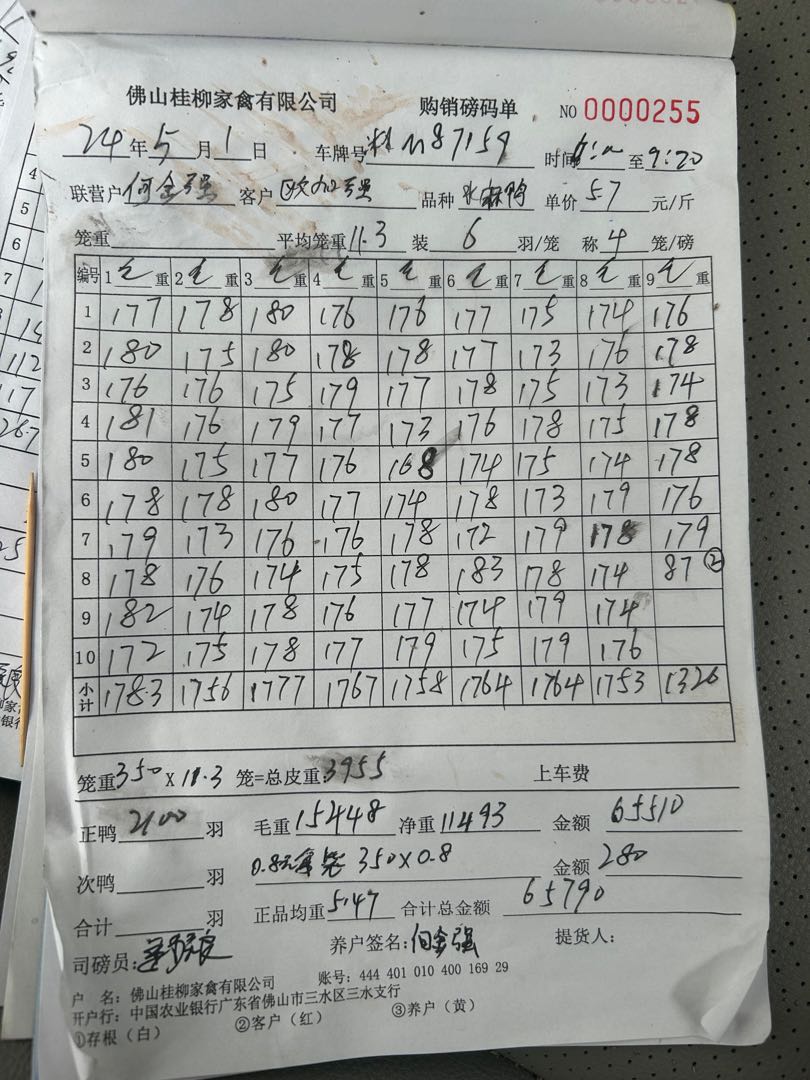 佛山桂柳家禽有限公司 购销磅码单 NO 0000255
24年5月1日 车牌号 M87159 时间 至9:20
联营户何金强 客户欧加强 品种水麻鸭 单价5.7元/斤
笼重 平均笼重11.3 装6羽/笼 称4笼/磅
编号 1毛重 2毛重 3毛重 4毛重 5毛重 6毛重 7毛重 8毛重 9毛重
1 177 178 180 176 176 177 175 174 176
2 180 175 180 178 178 177 173 176 178
3 176 176 175 179 177 178 175 173 174
4 181 176 179 177 173 176 178 175 178
5 180 175 177 176 168 174 175 174 178
6 178 178 180 177 174 178 173 179 176
7 179 173 176 176 178 172 179 178 179
8 178 176 174 175 178 183 178 174 87②
9 182 174 178 176 177 174 179 174
10 172 175 178 177 179 175 179 176
小计 1783 1756 1777 1767 1758 1764 1764 1753 1326
笼重350×11.3笼=总皮重:3955 上车费
正鸭2100羽 毛重15448 净重11493 金额65510
次鸭 羽 350×0.8 金额280
合计 羽 正品均重5.47 合计总金额65790
司磅员: 养户签名:何金强 提货人:
户 名:佛山桂柳家禽有限公司 账号:444 401 010 400 169 29
开户行:中国农业银行广东省佛山市三水区三水支行
①存根(白) ②客户(红) ③养户(黄)